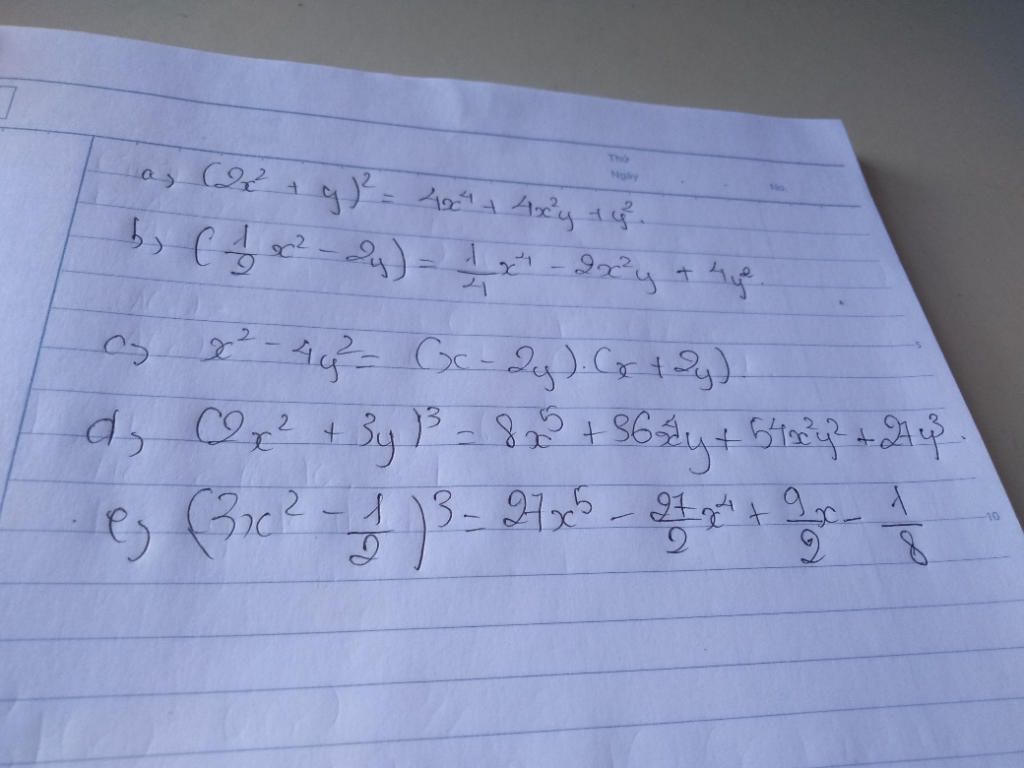 Thứ
Ngày
No.
a, (2x² + y)² = 4x⁴ + 4x²y + y².
b, (1/2 x² - 2y) = 1/4 x⁴ - 2x²y + 4y².
c, x² - 4y² = (x - 2y).(x + 2y)
5
d, (2x² + 3y)³ = 8x⁵ + 36x⁴y + 54x²y² + 27y³.
e, (3x² - 1/2)³ = 27x⁵ - 27/2 x⁴ + 9/2 x - 1/8
10